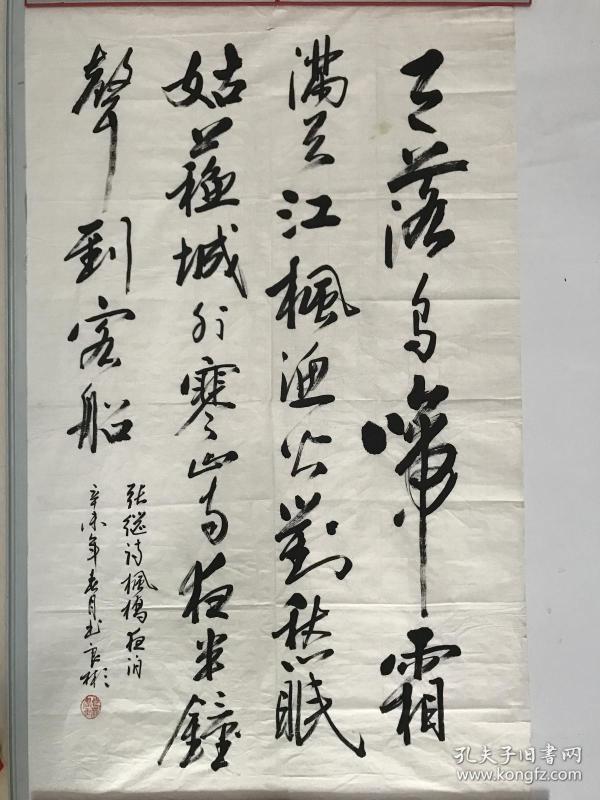 月落烏啼霜
滿天江楓漁火對愁眠
姑蘇城外寒山寺夜半鐘
聲到客船
張繼詩楓橋夜泊
辛未年春月
孔夫子旧书网
www.kongfz.com